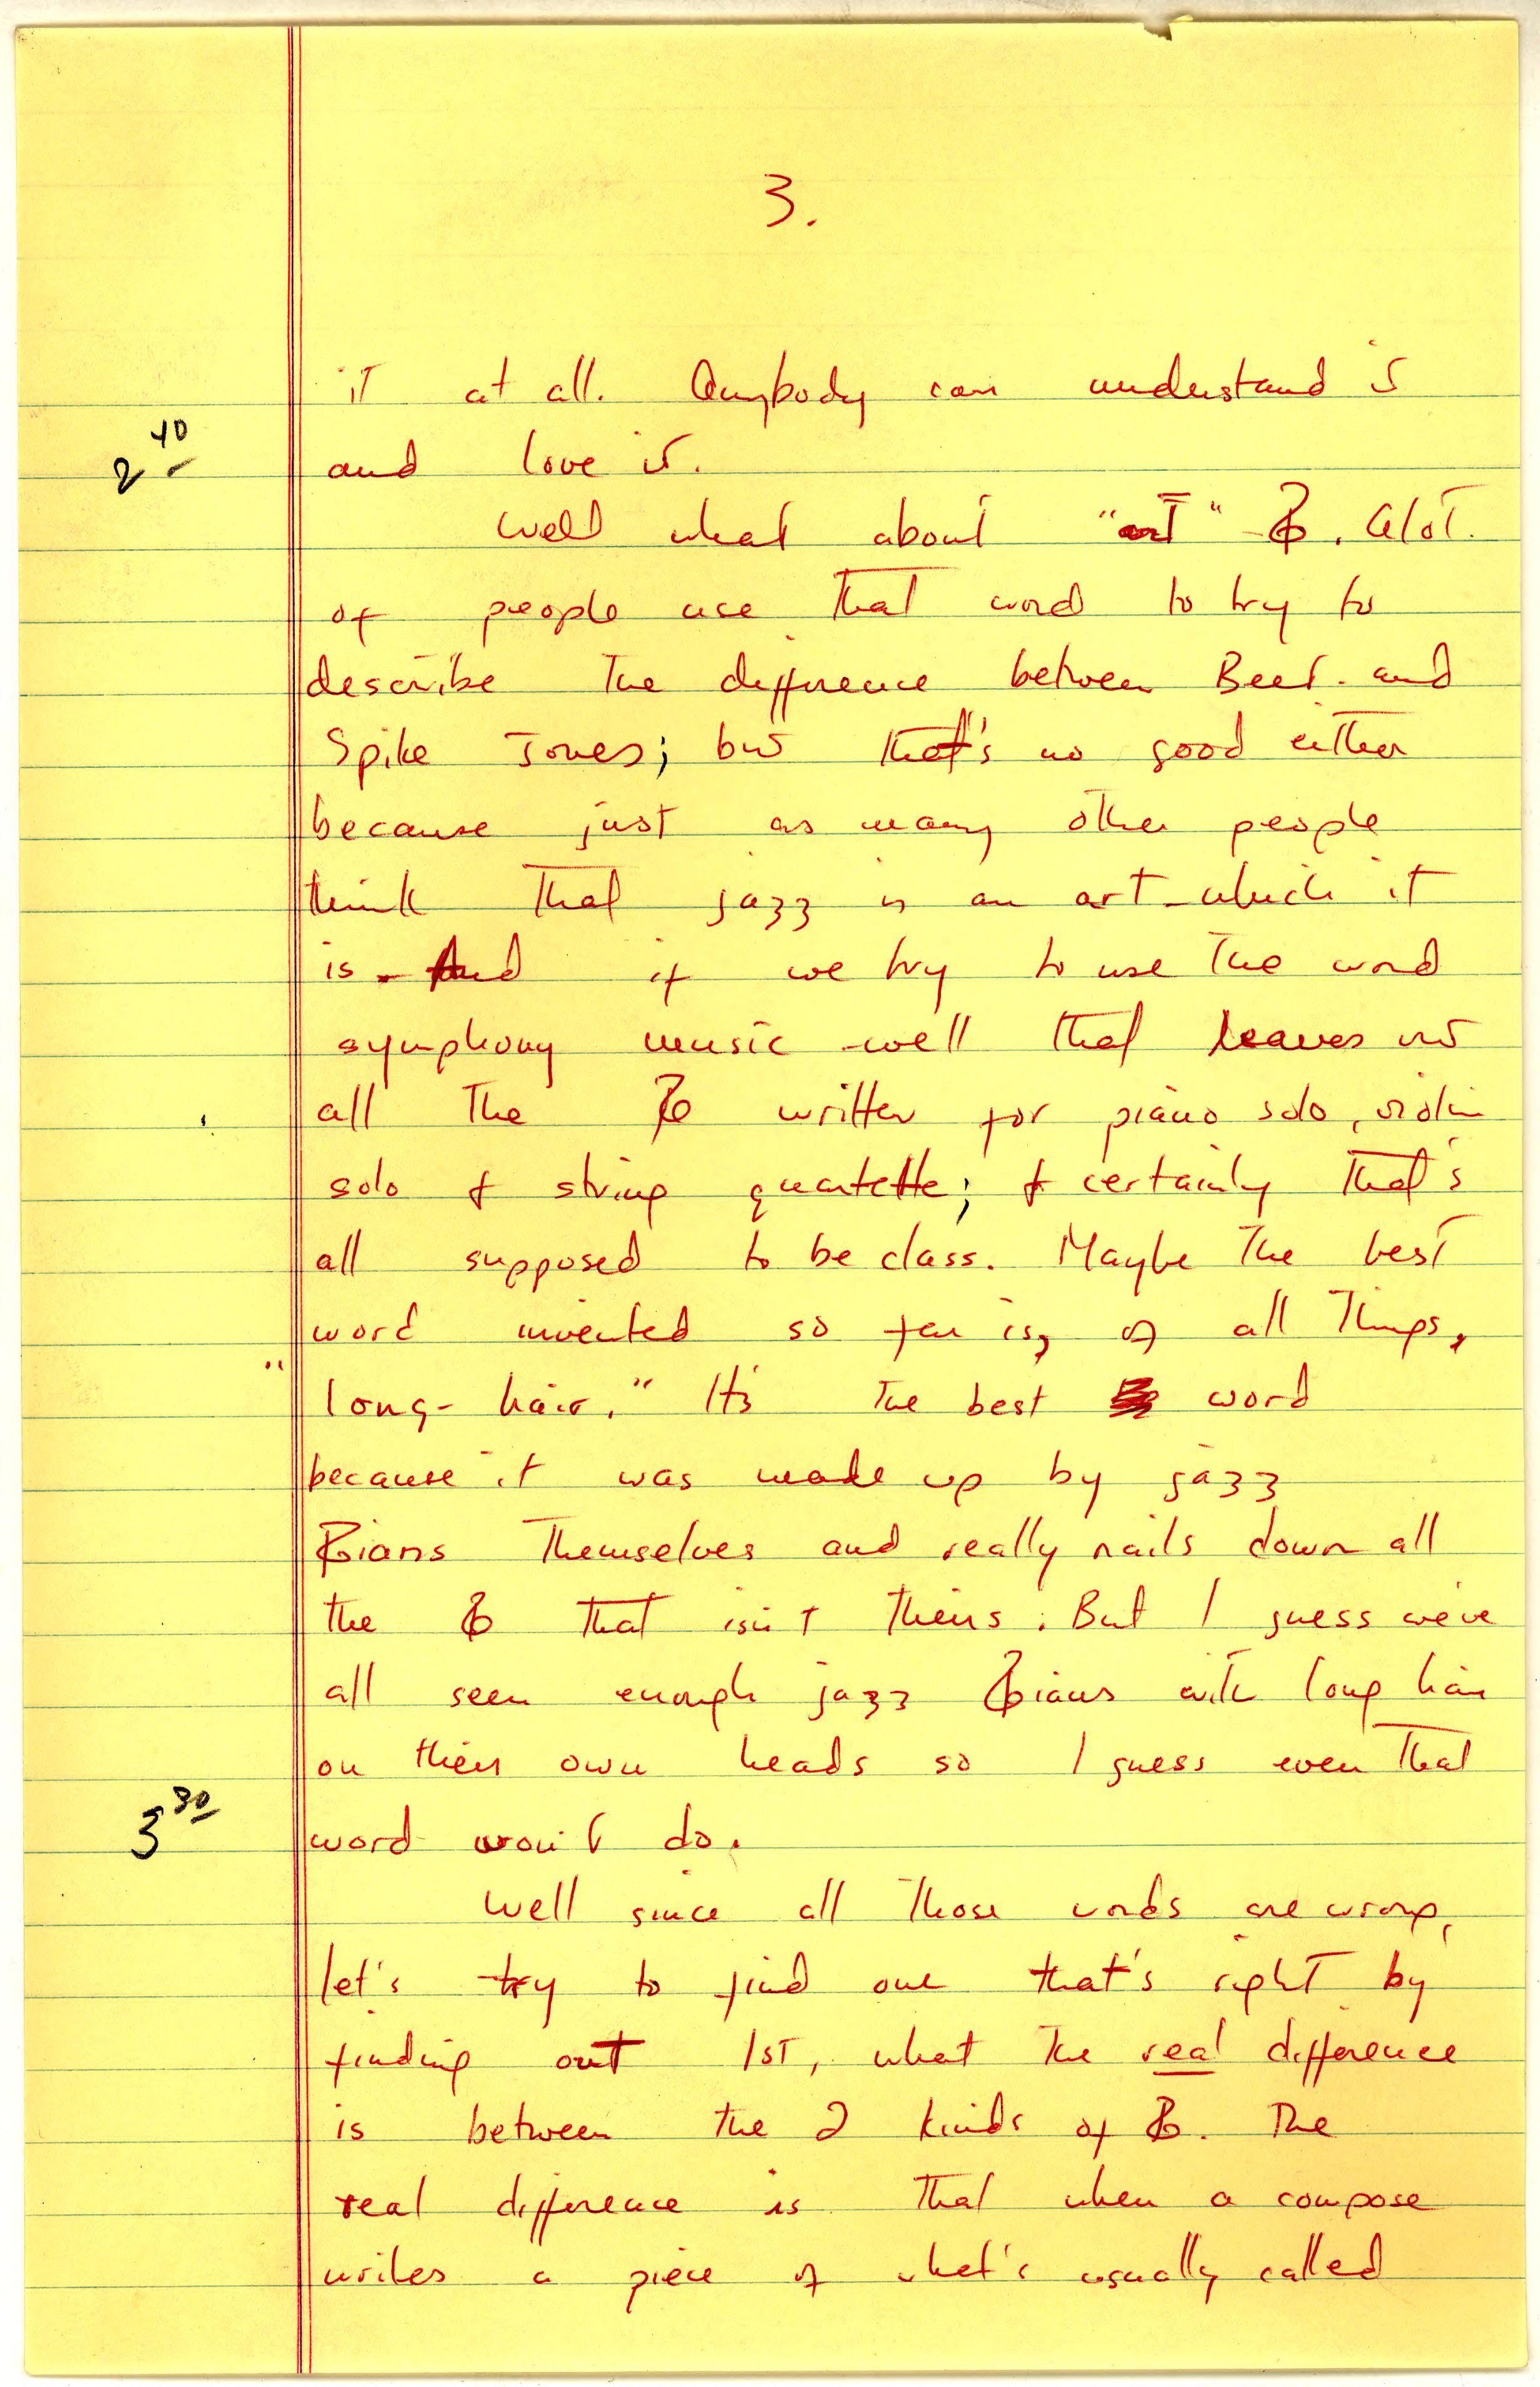 3.
it at all. Anybody can understand it
2 40
and love it.
Well what about "art" . Alot
of people use that word to try to
describe the difference between Beet. and
Spike Jones; but that's no good either
because just as many other people
think that jazz is an art - which it
is. And if we try to use the word
symphony music - well that leaves out
all the written for piano solo, violin
solo & string quartette; & certainly that's
all supposed to be class. Maybe the best
word invented so far is, of all things,
"long-hair." It's the best word
because it was made up by jazz
ians themselves and really nails down all
the that isn't theirs. But I guess we've
all seen enough jazz ians with long hair
on their own heads so I guess even that
3 30
word won't do.
Well since all those words are wrong,
let's try to find one that's right by
finding out 1st, what the real difference
is between the 2 kinds of . The
real difference is that when a compose
writes a piece of what's usually called